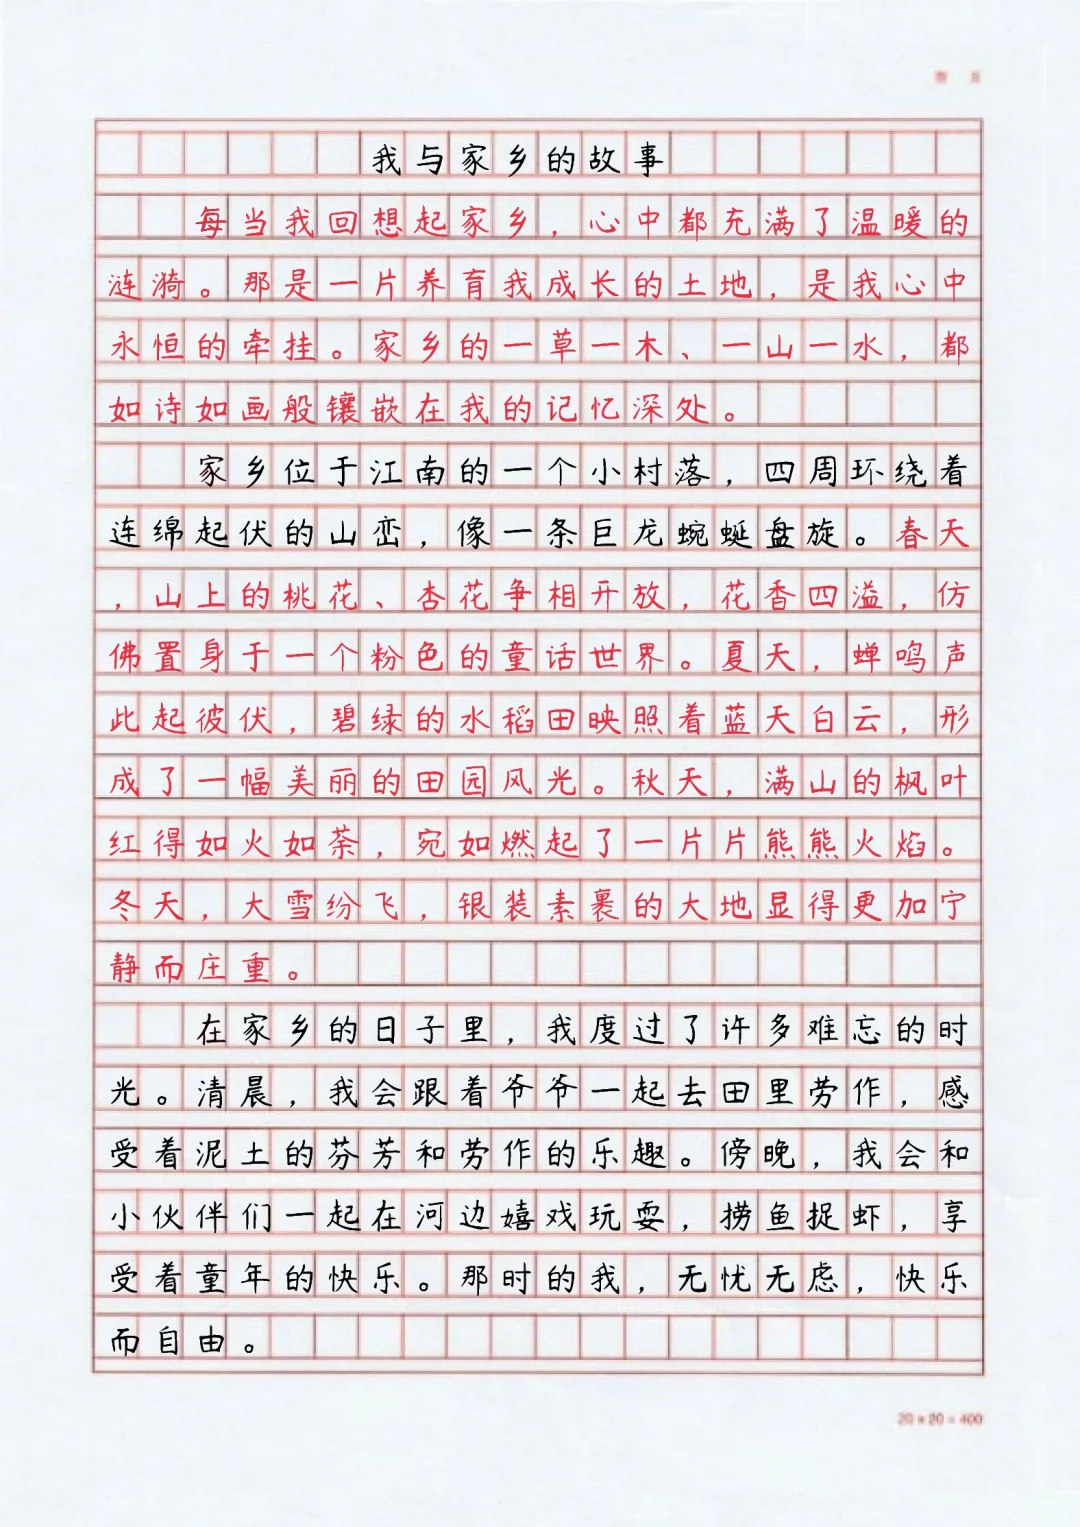 我与家乡的故事
每当我回想起家乡，心中都充满了温暖的
涟漪。那是一片养育我成长的土地，是我心中
永恒的牵挂。家乡的一草一木、一山一水，都
如诗如画般镶嵌在我的记忆深处。
家乡位于江南的一个小村落，四周环绕着
连绵起伏的山峦，像一条巨龙蜿蜒盘旋。春天
，山上的桃花、杏花争相开放，花香四溢，仿
佛置身于一个粉色的童话世界。夏天，蝉鸣声
此起彼伏，碧绿的水稻田映照着蓝天白云，形
成了一幅美丽的田园风光。秋天，满山的枫叶
红得如火如荼，宛如燃起了一片片熊熊火焰。
冬天，大雪纷飞，银装素裹的大地显得更加宁
静而庄重。
在家乡的日子里，我度过了许多难忘的时
光。清晨，我会跟着爷爷一起去田里劳作，感
受着泥土的芬芳和劳作的乐趣。傍晚，我会和
小伙伴们一起在河边嬉戏玩耍，捞鱼捉虾，享
受着童年的快乐。那时的我，无忧无虑，快乐
而自由。
20×20=400